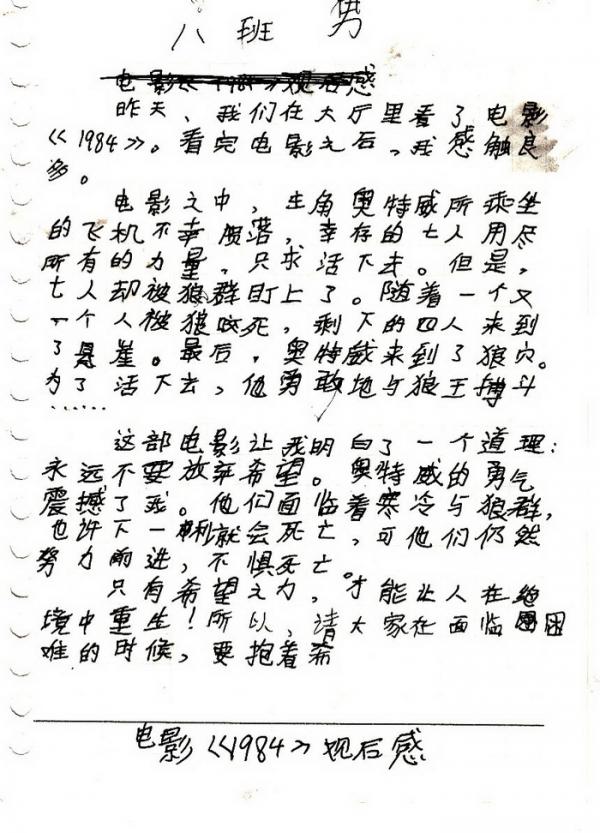 八班 男
电影《1984》观后感
昨天，我们在大厅里看了电影
《1984》。看完电影之后，我感触良
多。
电影之中，主角奥特威所乘坐
的飞机不幸陨落，幸存的七人用尽
所有的力量，只求活下去。但是，
七人却被狼群盯上了。随着一个又
一个人被狼咬死，剩下的四人来到
了悬崖。最后，奥特威来到了狼穴。
为了活下去，他勇敢地与狼王搏斗
……
这部电影让我明白了一个道理：
永远不要放弃希望。奥特威的勇气
震撼了我。他们面临着寒冷与狼群，
也许下一刻就会死亡，可他们仍然
努力前进，不惧死亡。
只有希望之力，才能让人在绝
境中重生！所以，请大家在面临困
难的时候，要抱着希
电影《1984》观后感